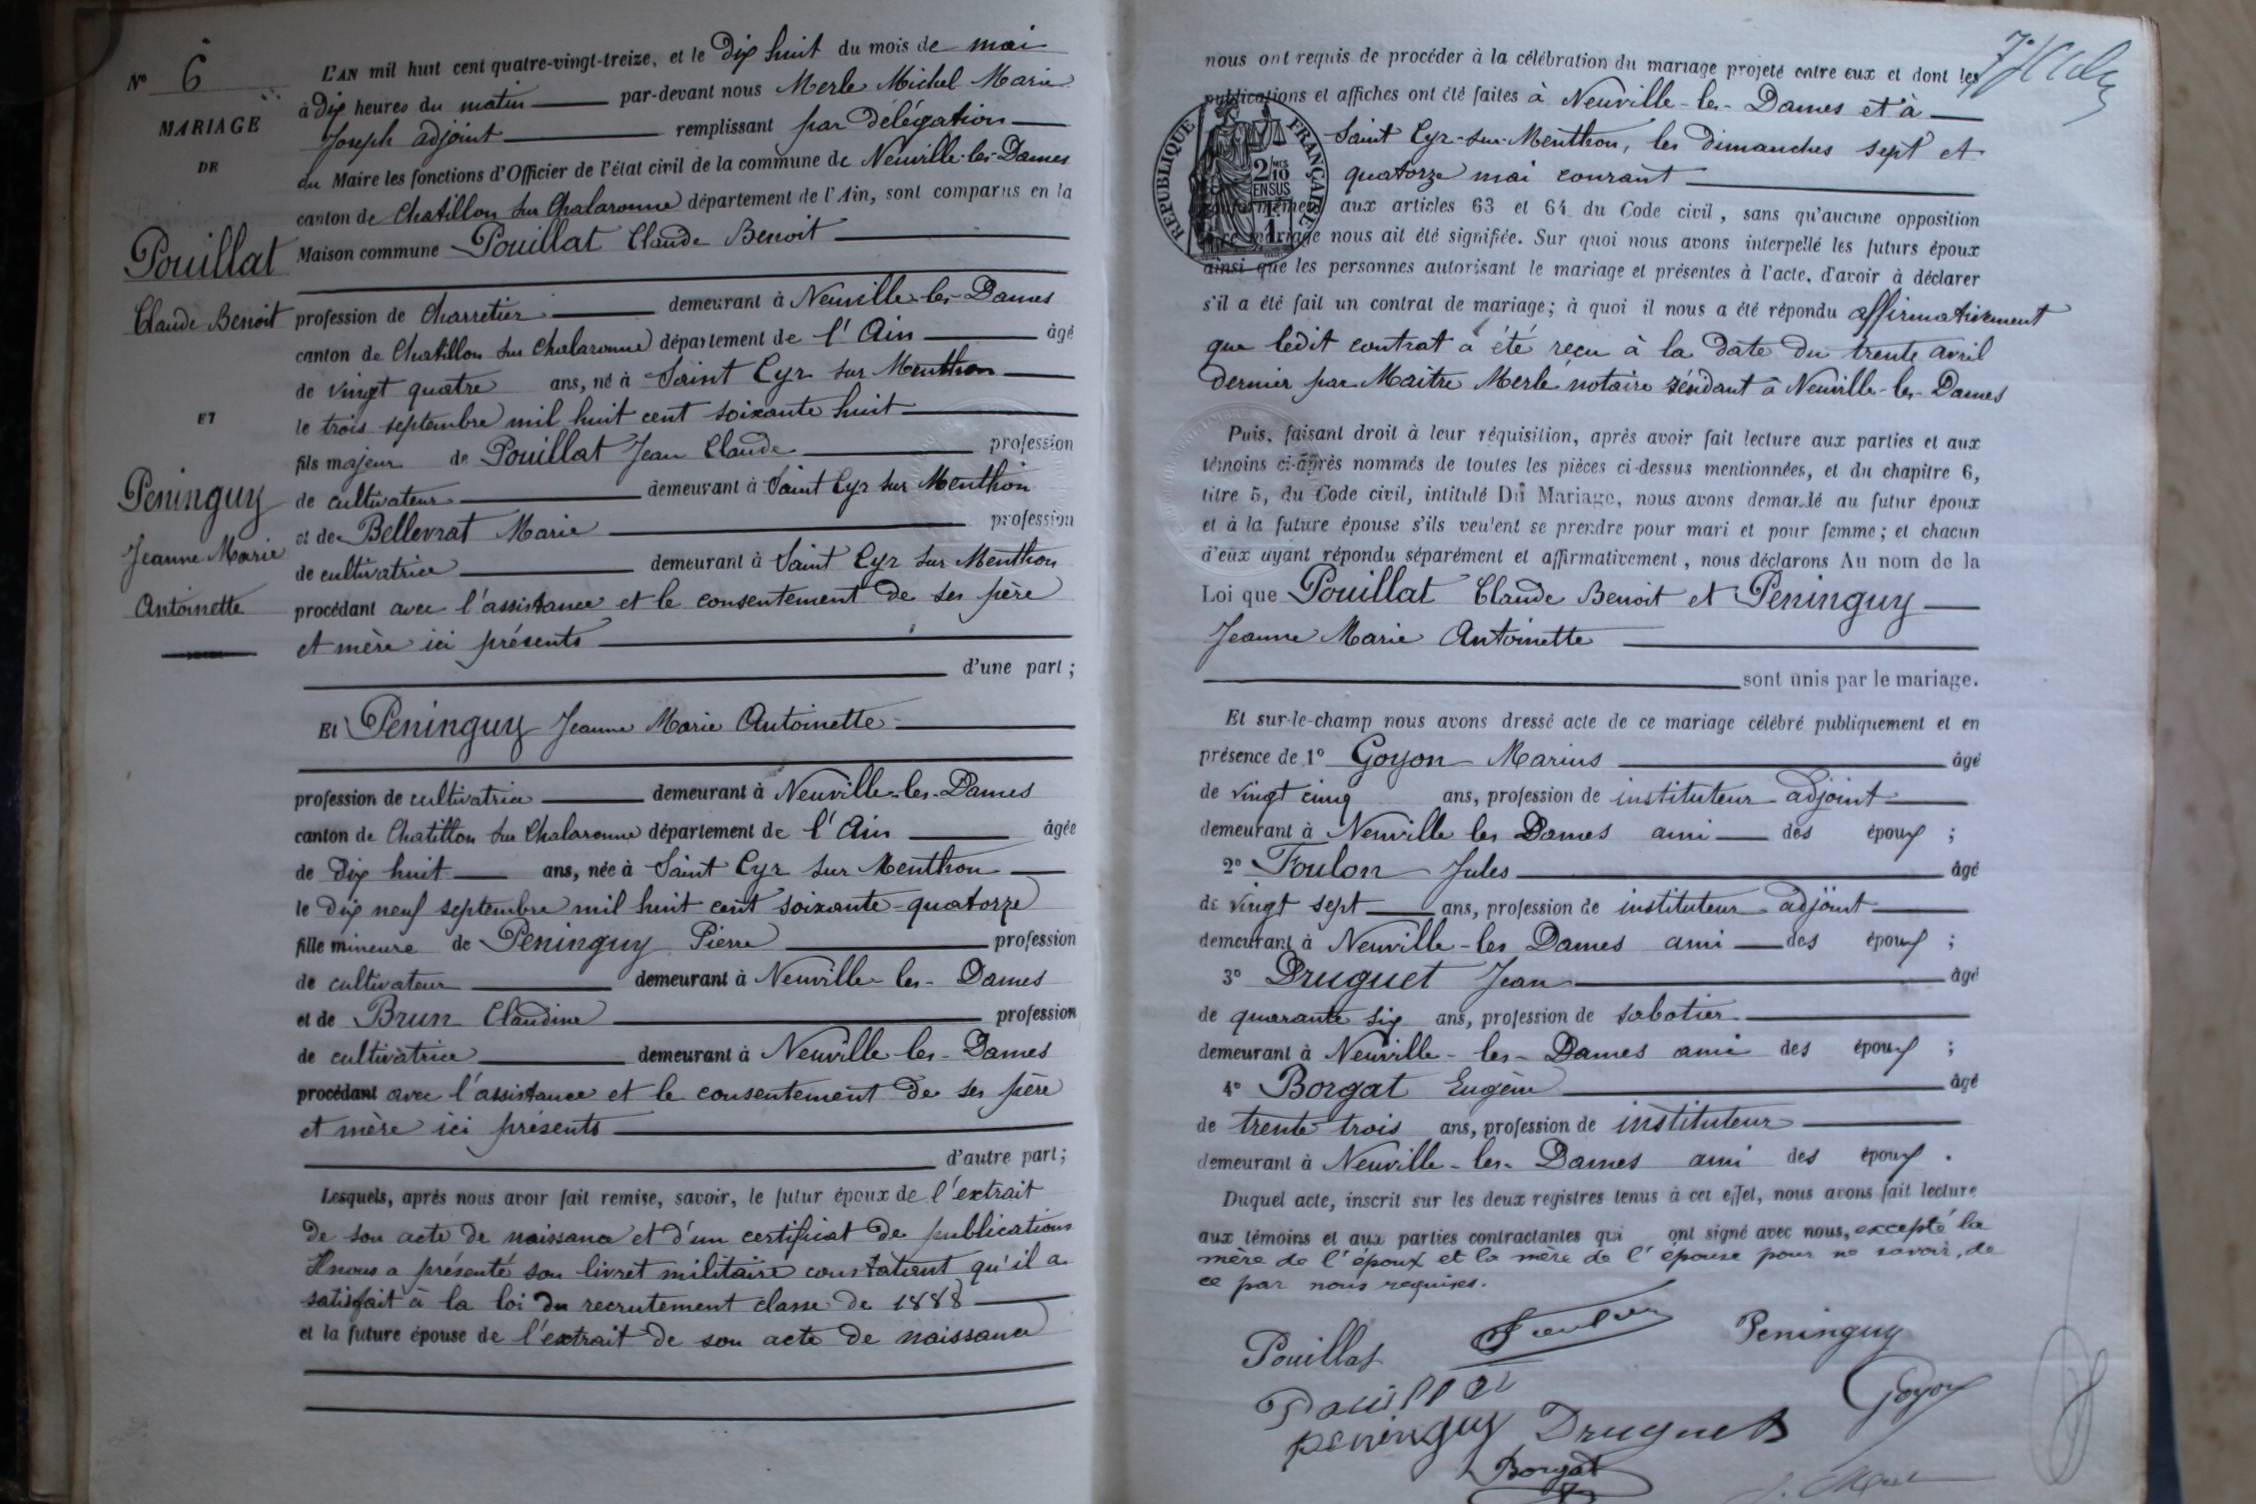 N° 6
MARIAGE
DE
Pouillat
Claude Benoit
ET
Peninguy
Jeanne Marie
Antoinette
L'AN mil huit cent quatre-vingt-treize, et le dix huit du mois de mai
à dix heures du matin par-devant nous Merle Michel Marie
Joseph adjoint remplissant par délégation
du Maire les fonctions d'Officier de l'état civil de la commune de Neuville-les-Dames
canton de Chatillon sur Chalaronne département de l'Ain, sont comparus en la
Maison commune Pouillat Claude Benoit
profession de charretier demeurant à Neuville-les-Dames
canton de Chatillon sur Chalaronne département de l'Ain âgé
de vingt quatre ans, né à Saint Cyr sur Menthon
le trois septembre mil huit cent soixante huit
fils majeur de Pouillat Jean Claude profession
de cultivateur demeurant à Saint Cyr sur Menthon
et de Bellevrat Marie profession
de cultivatrice demeurant à Saint Cyr sur Menthon
procédant avec l'assistance et le consentement de ses père
et mère ici présents
d'une part;
Et Peninguy Jeanne Marie Antoinette
profession de cultivatrice demeurant à Neuville-les-Dames
canton de Chatillon sur Chalaronne département de l'Ain âgée
de dix huit ans, née à Saint Cyr sur Menthon
le dix neuf septembre mil huit cent soixante-quatorze
fille mineure de Peninguy Pierre profession
de cultivateur demeurant à Neuville-les-Dames
et de Brun Claudine profession
de cultivatrice demeurant à Neuville-les-Dames
procédant avec l'assistance et le consentement de ses père
et mère ici présents
d'autre part;
Lesquels, après nous avoir fait remise, savoir, le futur époux de l'extrait
de son acte de naissance et d'un certificat de publications
Il nous a présenté son livret militaire constatant qu'il a
satisfait à la loi du recrutement classe de 1888
et la future épouse de l'extrait de son acte de naissance
nous ont requis de procéder à la célébration du mariage projeté entre eux et dont les
publications et affiches ont été faites à Neuville-les-Dames et à
Saint Cyr-sur-Menthon, les dimanches sept et
quatorze mai courant
RÉPUBLIQUE FRANÇAISE
2/10
EN SUS
conformément aux articles 63 et 64 du Code civil, sans qu'aucune opposition
à ce mariage nous ait été signifiée. Sur quoi nous avons interpellé les futurs époux
ainsi que les personnes autorisant le mariage et présentes à l'acte, d'avoir à déclarer
s'il a été fait un contrat de mariage; à quoi il nous a été répondu affirmativement
que ledit contrat a été reçu à la date du trente avril
dernier par Maitre Merle notaire résidant à Neuville-les-Dames
Puis, faisant droit à leur réquisition, après avoir fait lecture aux parties et aux
témoins ci-après nommés de toutes les pièces ci-dessus mentionnées, et du chapitre 6,
titre 5, du Code civil, intitulé Du Mariage, nous avons demandé au futur époux
et à la future épouse s'ils veulent se prendre pour mari et pour femme; et chacun
d'eux ayant répondu séparément et affirmativement, nous déclarons Au nom de la
Loi que Pouillat Claude Benoit et Peninguy
Jeanne Marie Antoinette
sont unis par le mariage.
Et sur-le-champ nous avons dressé acte de ce mariage célébré publiquement et en
présence de 1° Goyon Marius âgé
de vingt cinq ans, profession de instituteur adjoint
demeurant à Neuville les Dames ami des époux ;
2° Foulon Jules âgé
de vingt sept ans, profession de instituteur adjoint
demeurant à Neuville-les Dames ami des époux ;
3° Druguet Jean âgé
de quarante six ans, profession de sabotier
demeurant à Neuville-les-Dames ami des époux ;
4° Borgat Eugène âgé
de trente trois ans, profession de instituteur
demeurant à Neuville-les-Dames ami des époux .
Duquel acte, inscrit sur les deux registres tenus à cet effet, nous avons fait lecture
aux témoins et aux parties contractantes qui ont signé avec nous, excepté la
mère de l'époux et la mère de l'épouse pour ne savoir, de
ce par nous requises.
Pouillat Foulon Peninguy
Pouillat Goyon
Peninguy Druguet
Borgat